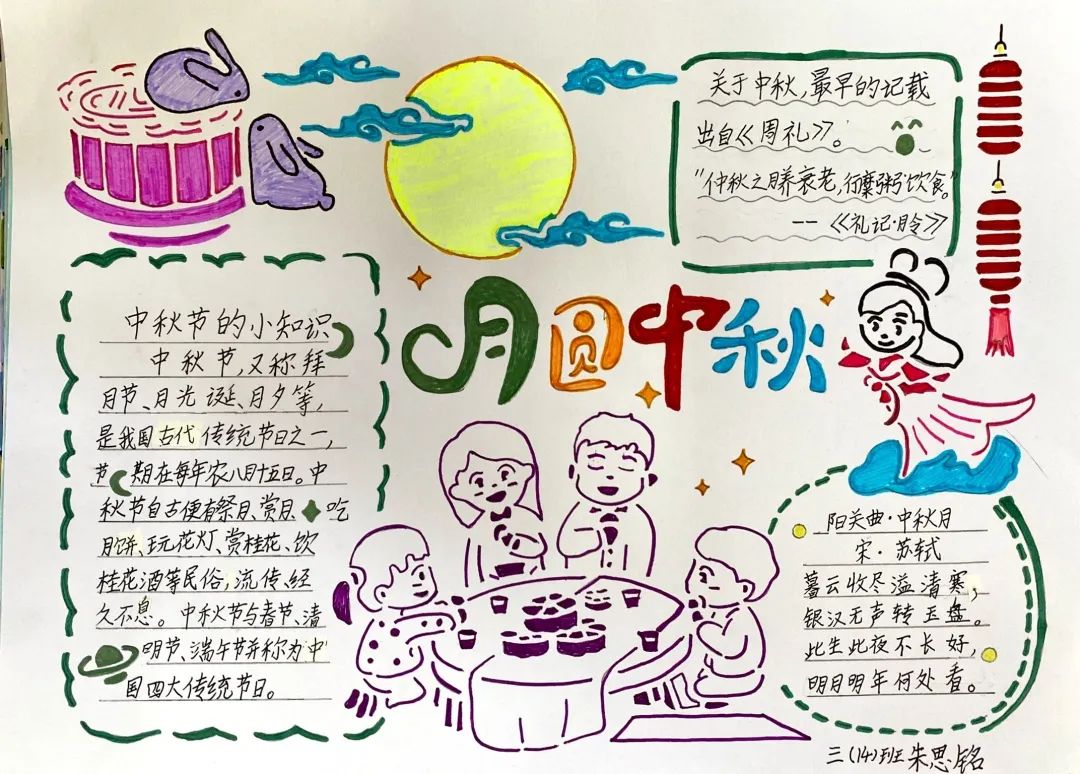 关于中秋,最早的记载
出自《周礼》。
"仲秋之月养衰老,行糜粥饮食。"
--《礼记·月令》
月圆中秋
中秋节的小知识
中秋节,又称拜
月节、月光诞、月夕等,
是我国古代传统节日之一,
节期在每年农八月十五日。中
秋节自古便有祭月、赏月、吃
月饼、玩花灯、赏桂花、饮
桂花酒等民俗,流传、经
久不息。中秋节与春节、清
明节、端午节并称为中
国四大传统节日。
阳关曲·中秋月
宋·苏轼
暮云收尽溢清寒,
银汉无声转玉盘。
此生此夜不长好,
明月明年何处看。
三(14)班 朱思铭